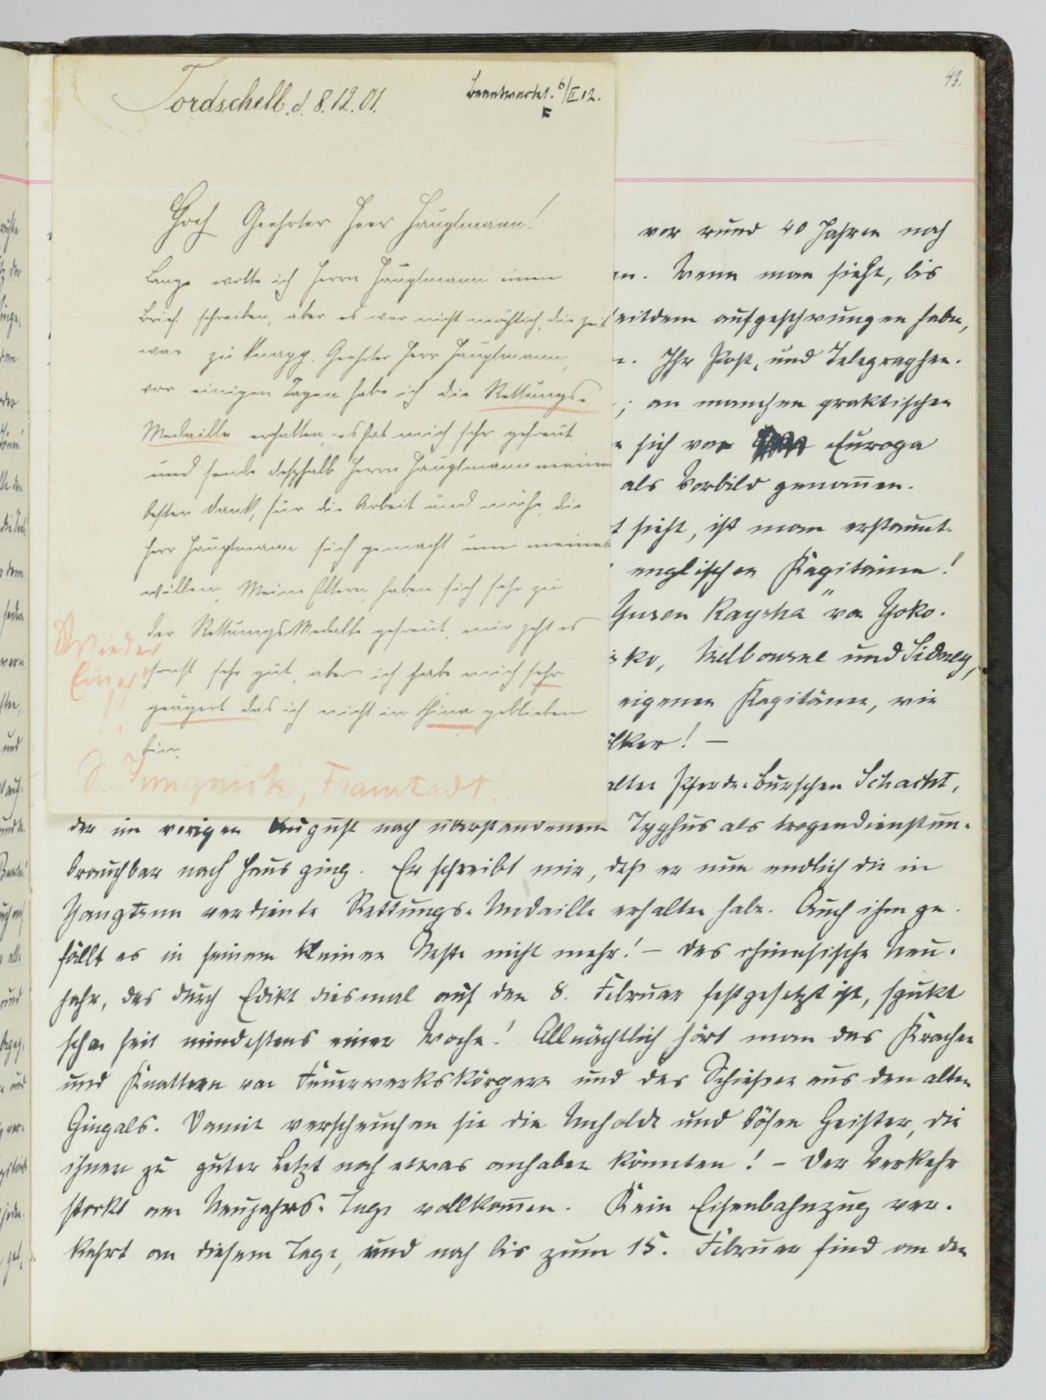 43.
Tordschell. d. 8.12.01.
Beantwortet. 6/II 12.
F
Hoch Geehrter Herr Hauptmann!
Lange wollte ich Herrn Hauptmann einen
Brief schreiben, aber es war nicht möchlich, die zeit
war zu knapp. Geehrter Herr Hauptmann,
vor einigen Tagen habe ich die Rettungs-
Medaille erhalten, es hat mich sehr gefreut
und sende deshhalb Herrn Hauptmann meinen
besten Dank, für die Arbeit und mühe, die
Herr Hauptmann sich gemacht um meines
willen. Meine Eltern haben sich sehr zu
der Rettungs Medalle gefreut, mir geht es
sonst sehr gut, aber ich habe mich sehr
geärgert das ich nicht in China geblieben
bin.
Wieder
Jungnick, Fraustadt.
vor rund 40 Jahren noch
en. Wenn man sieht, bis
seitdem aufgeschwungen haben,
Ihr Post- und Telegraphen-
; an manchen praktischen
sich von Europa
als Vorbild genommen.
t sieht, ist man erstaunt.
englischen Kapitäne!
Yusen Kaysha" von Yoko-
sko, Melbourne und Sidney,
eigenen Kapitäne, wie
lker! —
alten Pferde-Burschen Schacht,
der im vorigen August nach überstandenem Typhus als tropendienstun-
brauchbar nach Haus ging. Er schreibt mir, daß er nun endlich die in
Yangtsun verdiente Rettungs-Medaille erhalten habe. Auch ihm ge-
fällt es in seinem kleinen Neste nicht mehr! — Das chinesische Neu-
jahr, das durch Edikt diesmal auf den 8. Februar festgesetzt ist, spukt
schon seit mindestens einer Woche! Allnächtlich hört man das Krachen
und Knattern von Feuerwerkskörpern und das Schießen aus den alten
Gingals. Damit verscheuchen sie die Unholde und bösen Geister, die
ihnen zu guter Letzt noch etwas anhaben könnten! — Der Verkehr
stockt am Neujahrs-Tage vollkommen. Kein Eisenbahnzug ver-
kehrt an diesem Tage, und noch bis zum 15. Februar sind an den